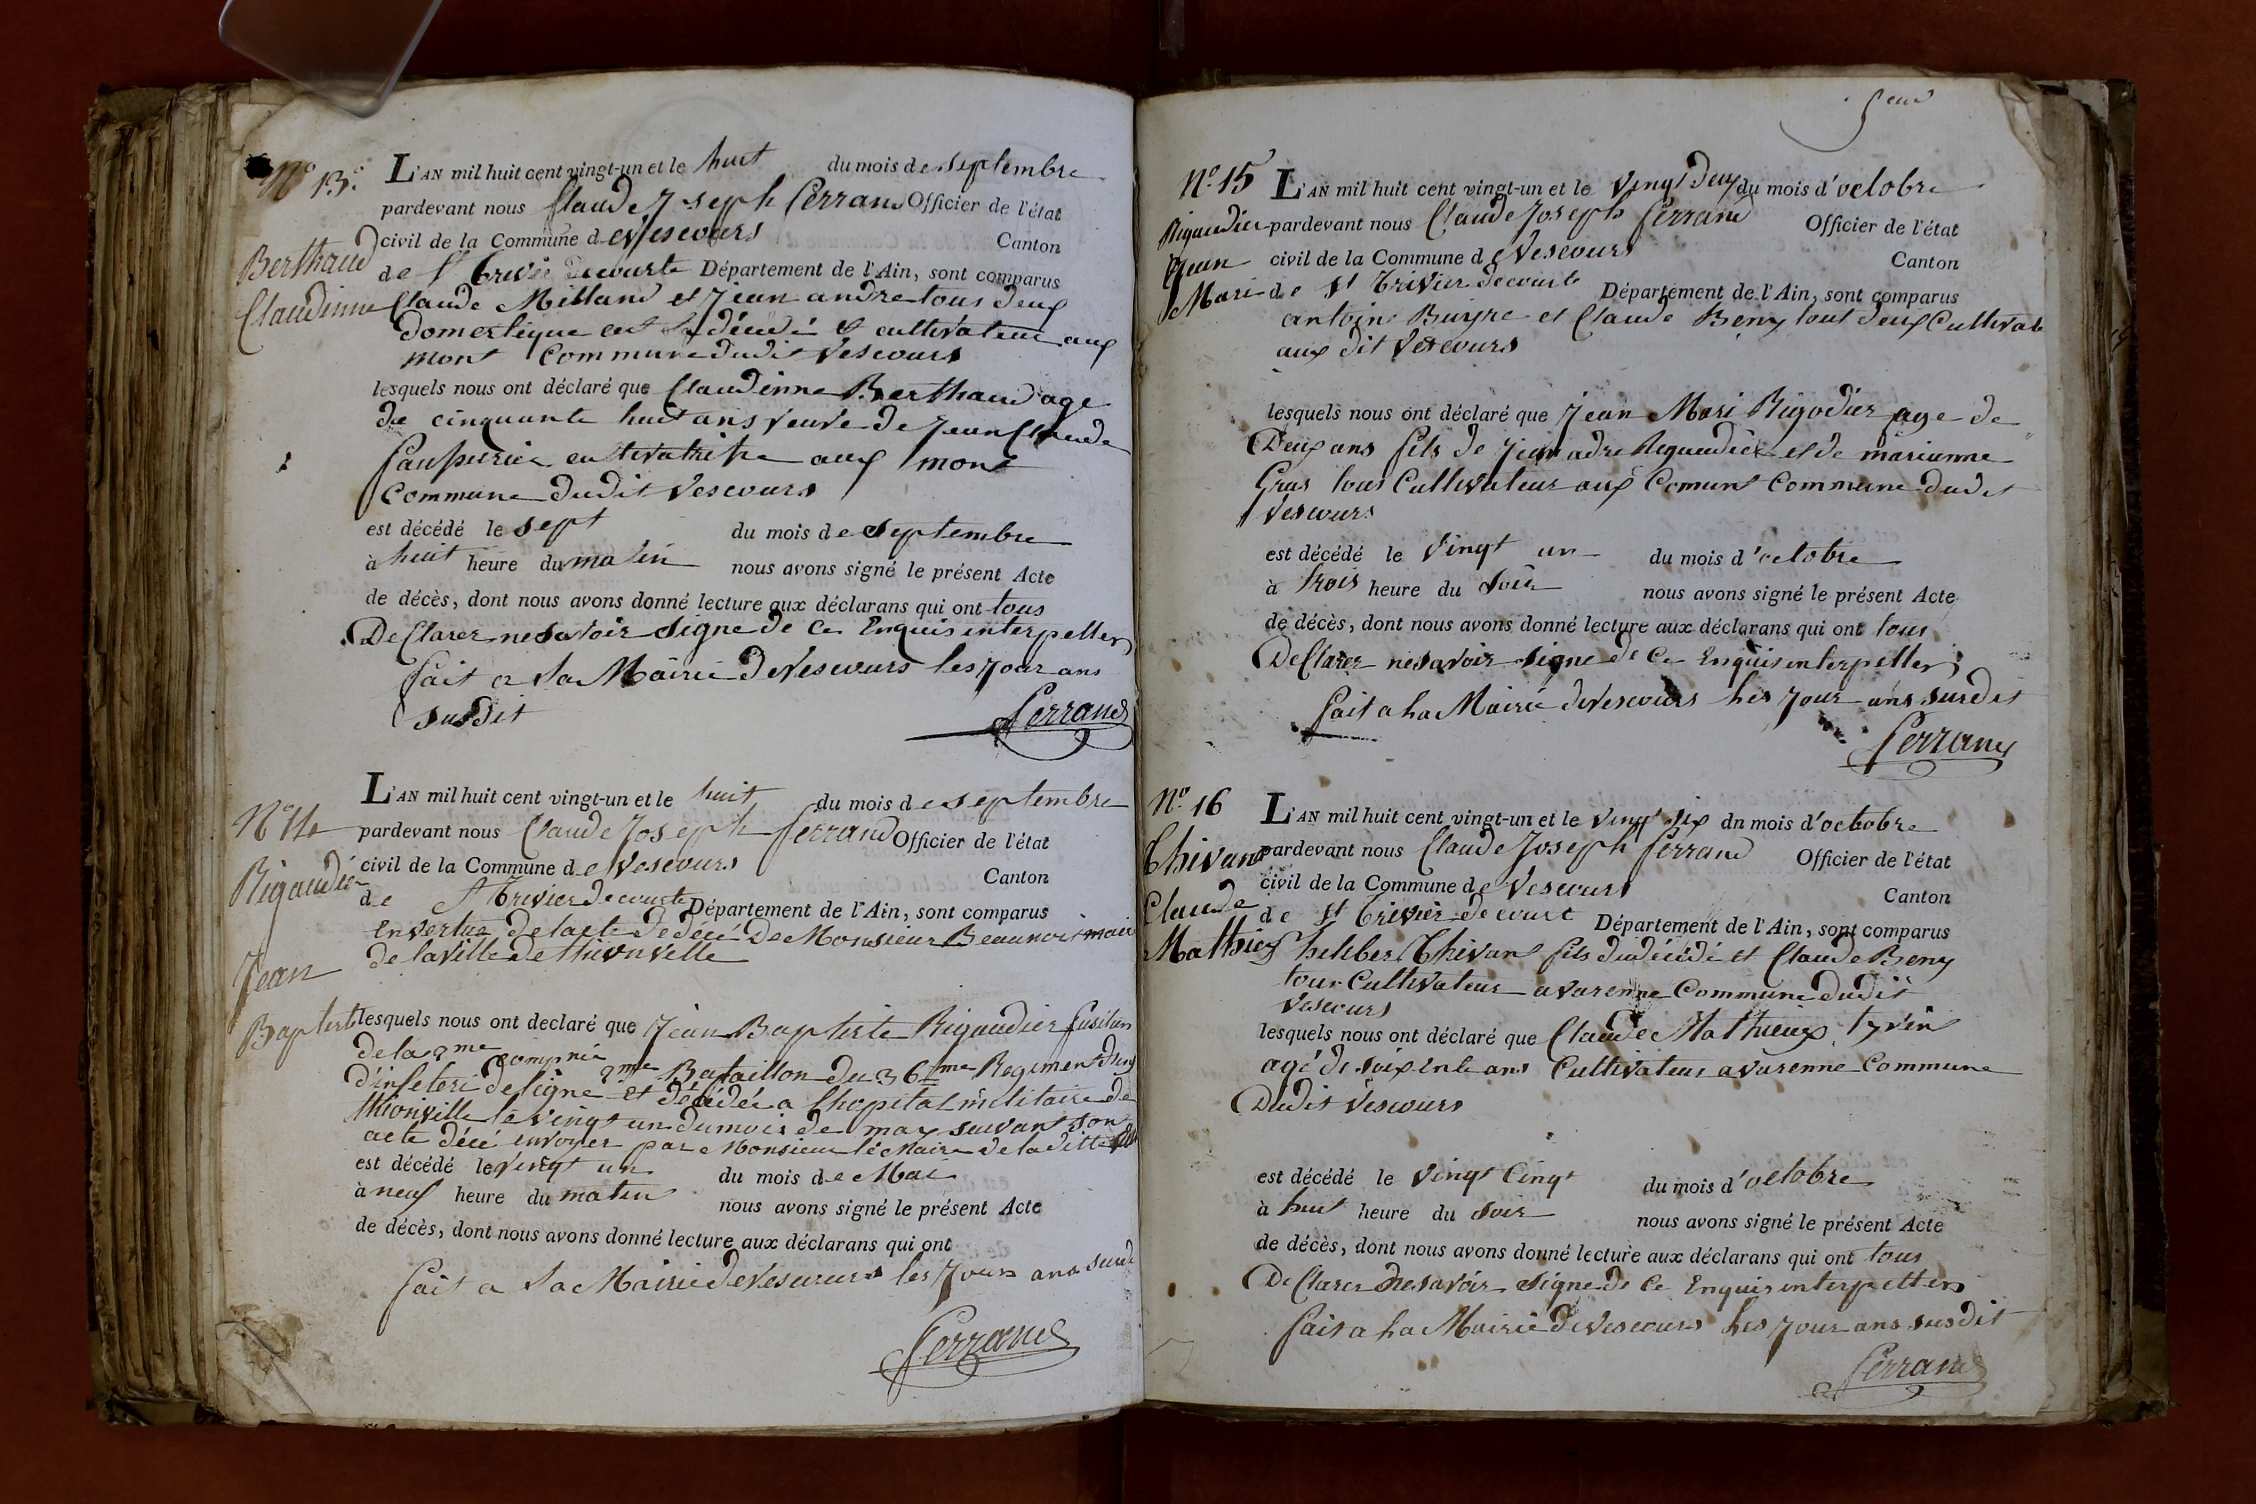 N° 13.
Berthaud
Claudinne
L'AN mil huit cent vingt-un et le huit du mois de septembre
pardevant nous Claude Joseph Ferrand Officier de l'état
civil de la Commune de Vescours Canton
de St Trivier de courte Département de l'Ain, sont comparus
Claude Milland et Jean andre tous deux
domestique cultivateur aux
mont Commune dudit Vescours
lesquels nous ont déclaré que Claudinne Berthaud age
de cinquante huit ans veuve de Jean Claude
cultivatrise aux mont
Commune dudit Vescours
est décédé le sept du mois de septembre
à huit heure du matin nous avons signé le présent Acte
de décès, dont nous avons donné lecture aux déclarans qui ont tous
DeClarer ne savoir signe de Ce Enquis interpeller
fait a la Mairie de Vescours les jour ans
susdit
Ferrand
N° 14
Rigaudier
Jean
Baptiste
L'AN mil huit cent vingt-un et le huit du mois de septembre
pardevant nous Claude Joseph Ferrand Officier de l'état
civil de la Commune de Vescours Canton
de St Trivier de courte Département de l'Ain, sont comparus
En vertue de lacte de décé De Monsieur Beaunoir mair
de la Ville de thionville
lesquels nous ont declaré que Jean Baptiste Rigaudier fusilier
de la 2me compnié 2me Bataillon du 36me Regiment
d'infeteri de ligne et décédée a lhopital militaire de
thionville le vingt un du mois de may suivant son
acte décé envoyer par Monsieur le Maire de la ditte ville
est décédé le vingt un du mois de Mai
à neuf heure du matin nous avons signé le présent Acte
de décès, dont nous avons donné lecture aux déclarans qui ont
fait a la Mairie de Vescours les jours ans susdit
Ferrand
N° 15
Rigaudier
Jean
Mari
L'AN mil huit cent vingt-un et le vingt deux du mois d'octobre
pardevant nous Claude Joseph Ferrand Officier de l'état
civil de la Commune de Vescours Canton
de St Trivier de courte Département de l'Ain, sont comparus
antoine Buyre et Claude Beny tout deux Cultivat
aux dit Vescours
lesquels nous ont déclaré que Jean Mari Rigodier age de
Deux ans fils de Jean adre Regaudier et de marianne
Gras tous Cultivateur aux Comunt Commune dudit
Vescours
est décédé le vingt un du mois d'octobre
à trois heure du soir nous avons signé le présent Acte
de décès, dont nous avons donné lecture aux déclarans qui ont tous
DeClarer ne savoir signe de Ce Enquis interpeller
fait a la Mairie de Vescours les jour ans susdit
Ferrand
N° 16
Thivand
Claude
Mathieu
L'AN mil huit cent vingt-un et le vingt six dn mois d'octobre
pardevant nous Claude Joseph Ferrand Officier de l'état
civil de la Commune de Vescours Canton
de St Trivier de court Département de l'Ain, sont comparus
Philiber Thivan fils du décédé et Claude Beny
tous Cultivateur a varenne Commune dudit
Vescours
lesquels nous ont déclaré que Claude Mathieux
agé de soixente ans Cultivateur a varenne Commune
Dudit Vescours
est décédé le vingt Cinq du mois d'octobre
à huit heure du soir nous avons signé le présent Acte
de décès, dont nous avons donné lecture aux déclarans qui ont tous
DeClarer ne savoir signe de Ce Enquis interpeller
fait a la Mairie de Vescours les jour ans susdit
Ferrand